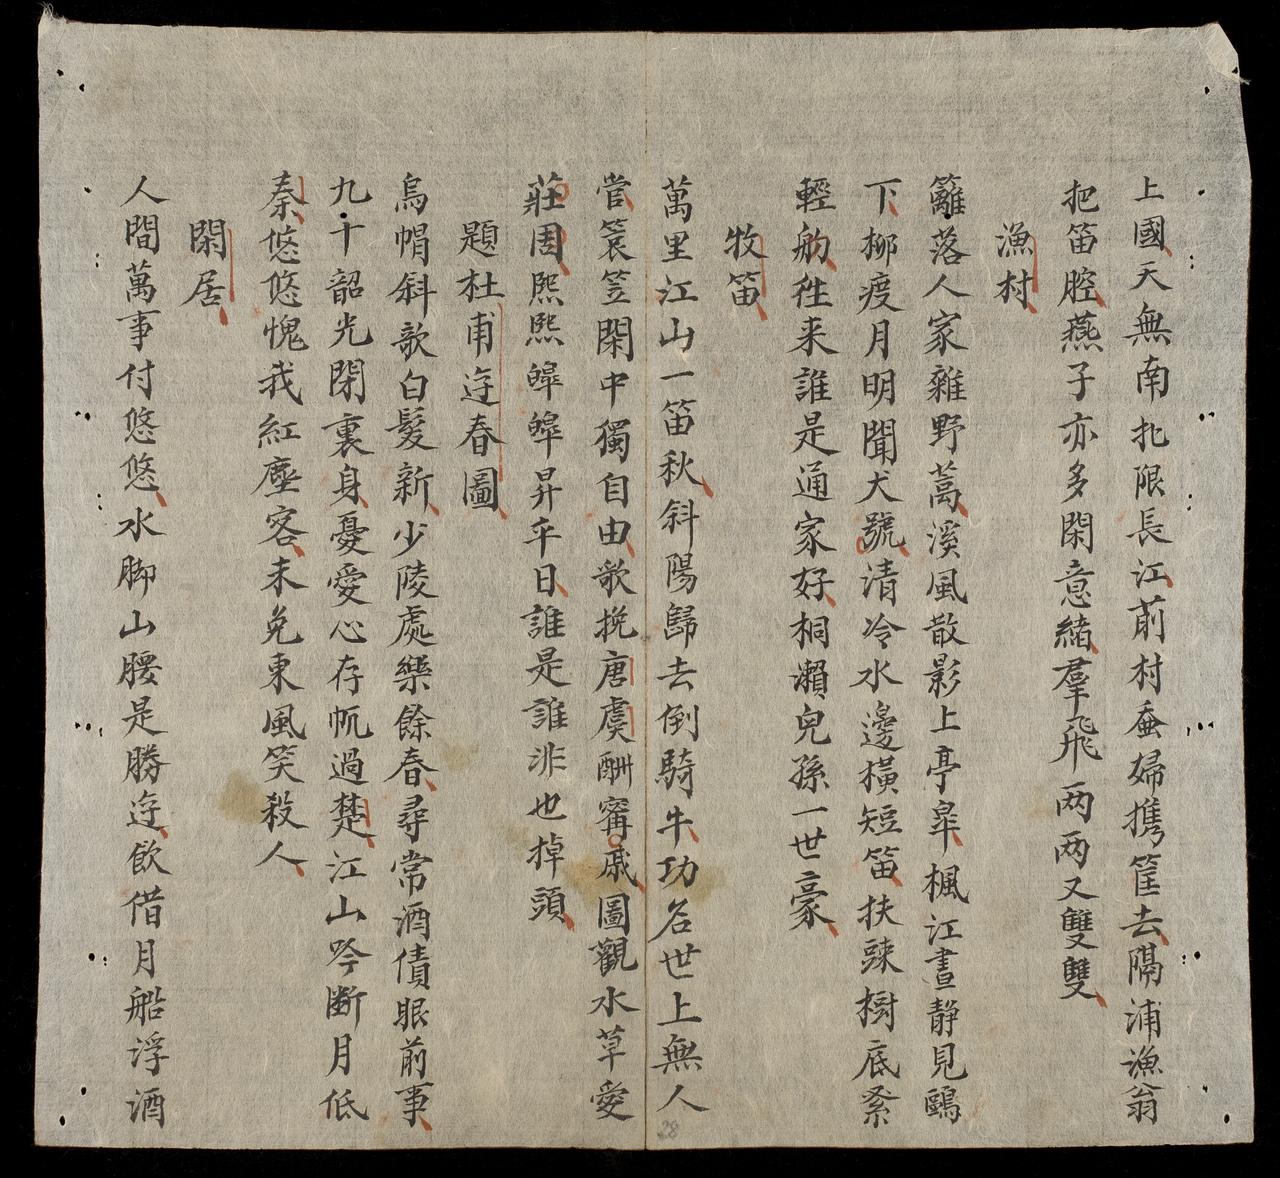 上國天無南北限長江前村蚕婦携筐去隔浦漁翁
把笛腔燕子亦多閑意緒羣飛两两又雙雙
漁村
籬落人家雜野蒿溪風散影上亭皋楓江晝静見鷗
下柳渡月明聞犬號清冷水邊橫短笛扶踈樹底系
輕舠徃来誰是通家好桐瀨兒孫一世豪
牧笛
萬里江山一笛秋斜陽歸去倒騎牛功名世上無人
嘗簑笠閑中獨自由歌挽唐虞酬甯戚圖觀水草愛
莊周熙熙皡皡昇平日誰是誰非也掉頭
題杜甫逰春圖
烏帽斜歌白髮新少陵處樂餘春尋常酒債眼前事
九十韶光閑裏身憂愛心存帆過楚江山吟断月低
秦悠悠愧我紅塵客未免東風笑殺人
閑居
人間萬事付悠悠水脚山腰是勝逰飲借月船浮酒
28